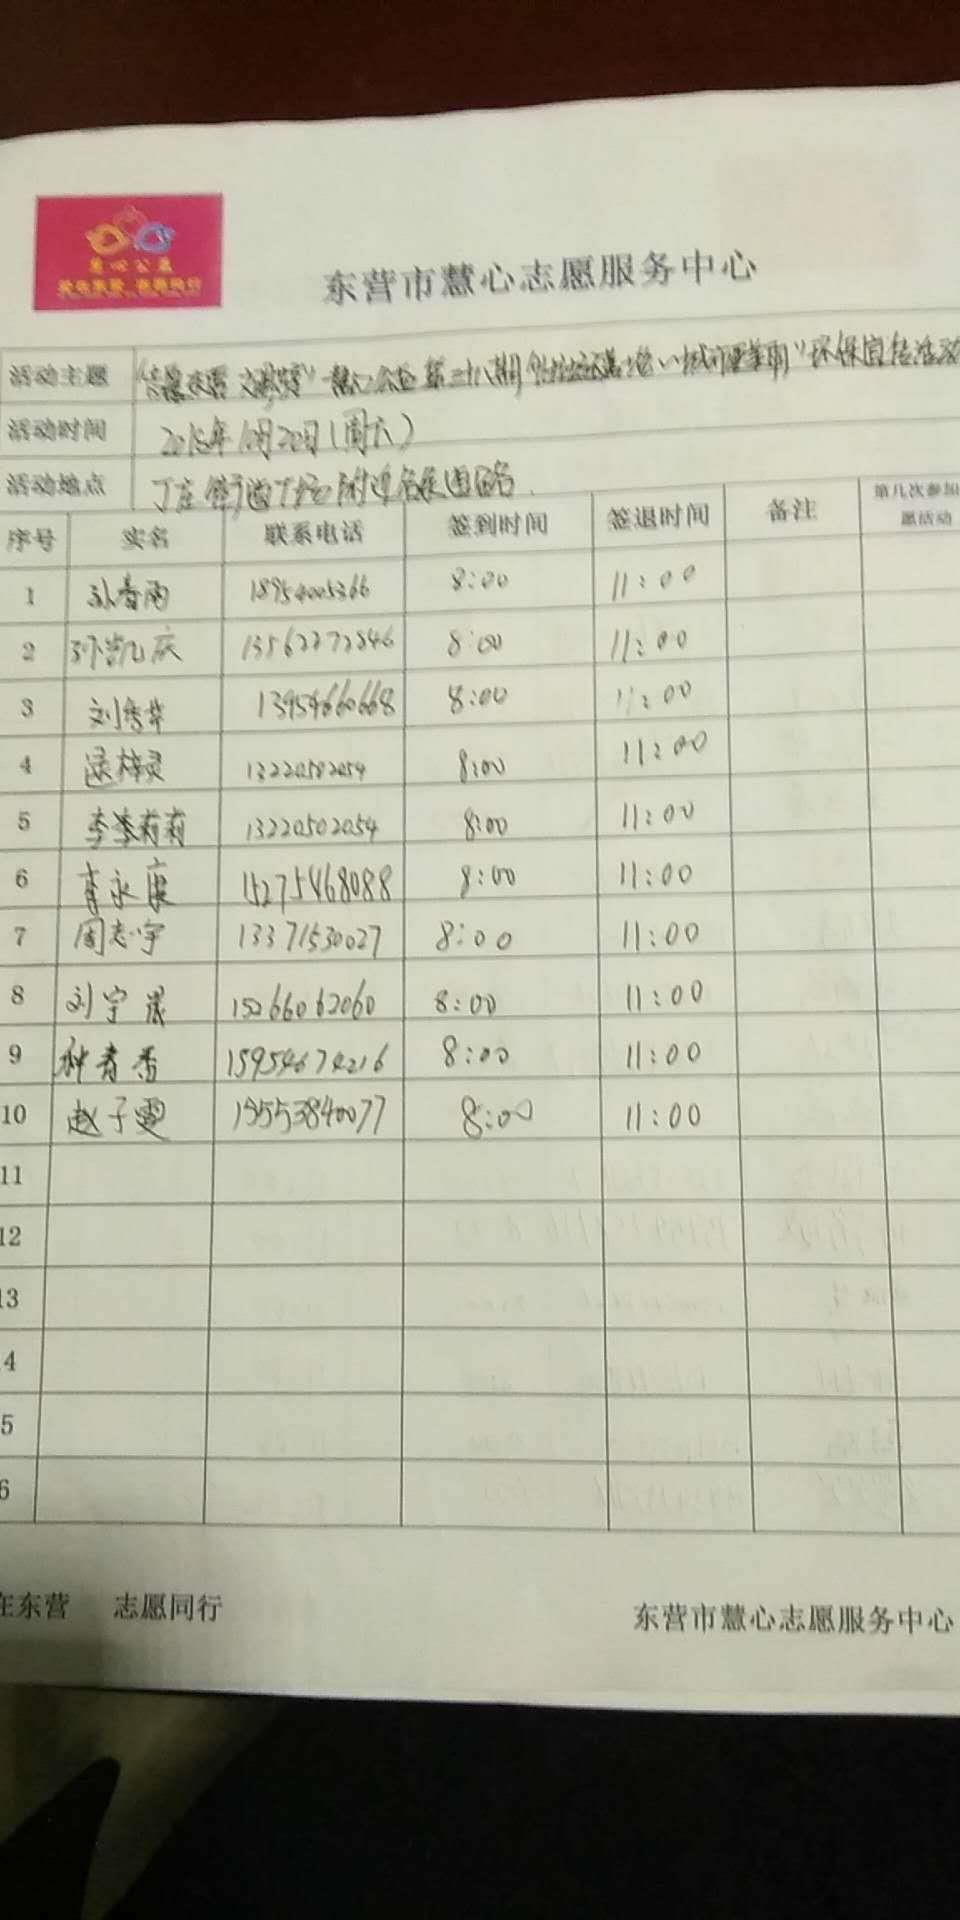 慧心公益
爱在东营 志愿同行
东营市慧心志愿服务中心
活动主题 慧心公益 第三十八期 环保宣传活动
活动时间 2018年10月20日(周六)
活动地点 丁庄 附近各条道路.
序号 实名 联系电话 签到时间 签退时间 备注 第几次参加
愿活动
1 孙春雨 18954005366 8:00 11:00
2 孙凯庆 13562272846 8:00 11:00
3 刘秀华 13954660668 8:00 11:00
4 逯梓灵 13220502054 8:00 11:00
5 李莉莉 13220502054 8:00 11:00
6 李永康 15275468088 8:00 11:00
7 周志宇 13371530027 8:00 11:00
8 刘宇晟 15266062060 8:00 11:00
9 种青香 15954674216 8:00 11:00
10 赵子雯 15553840077 8:00 11:00
11
12
13
4
5
6
在东营 志愿同行 东营市慧心志愿服务中心